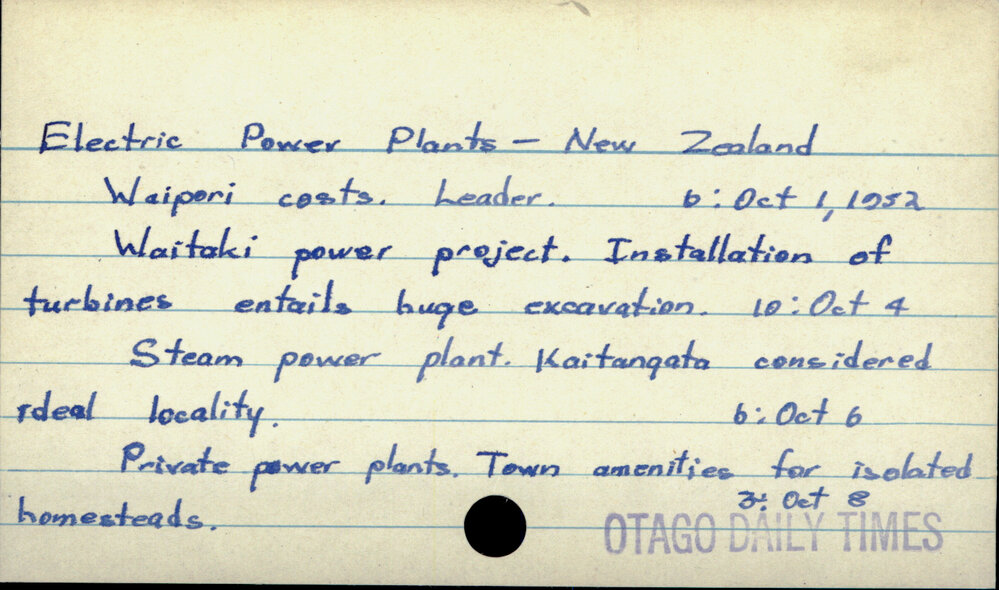 Electric Power Plants - New Zealand
Waipori costs. Leader. 6: Oct 1, 1952
Waitaki power project. Installation of
turbines entails huge excavation. 10: Oct 4
Steam power plant. Kaitangata considered
ideal locality. 6: Oct 6
Private power plants. Town amenities for isolated
homesteads. 3: Oct 8
OTAGO DAILY TIMES